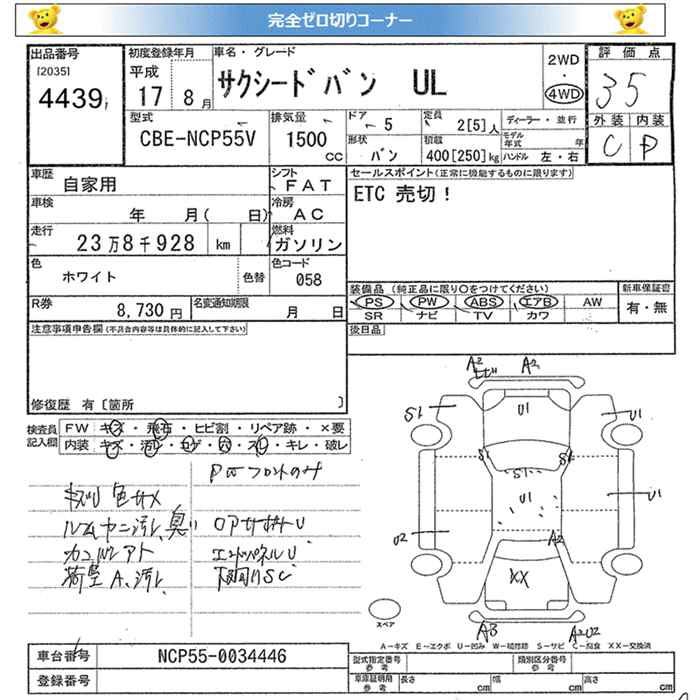 完全ゼロ切りコーナー
出品番号
[2035]
4439
初度登録年月
平成
17 8月
車名・グレード
サクシードバン UL
2WD
・
4WD
評価点
35
外装 内装
C D
型式
CBE-NCP55V
排気量
1500
CC
ドア
5
形状
バン
定員
2[5]人
積載
400[250]kg
ディーラー・並行
モデル
年式 年
ハンドル 左・右
車歴
自家用
シフト
FAT
車検
年 月( 日)
冷房
AC
走行
23万8千928 km
燃料
ガソリン
色
ホワイト
色替
色コード
058
R券
8,730円
名変通知期限
月 日
セールスポイント(正常に機能するものに限ります)
ETC 売切!
装備品 (純正品に限り○をつけてください)
PS PW ABS エアB AW
SR ナビ TV カワ
新車保証書
有・無
後日品
注意事項申告欄(不具合内容等は具体的に記入して下さい)
修復歴 有〔箇所 〕
検査員
記入欄
FW キズ・飛石・ヒビ割・リペア跡・×要
内装 キズ・汚レ・コゲ・穴・スレ・キレ・破レ
PWフロントのみ
キズU 色サメ
ルームヤニ汚レ、臭い
ロアサポートU
エンドパネルU
荷室A、汚レ
下回りSC
A2
A2
U1
S1
U1
S1
S1
S1
U1
U1
U2
A2
XX
A3
A2U2
スペア
A-キズ E-エクボ U-凹み W-補修跡 S-サビ C-腐食 XX-交換済
車台番号
NCP55-0034446
登録番号
型式指定番号
参考
類別区分番号
参考
車庫証明用
参考
長さ cm
幅 cm
高さ cm